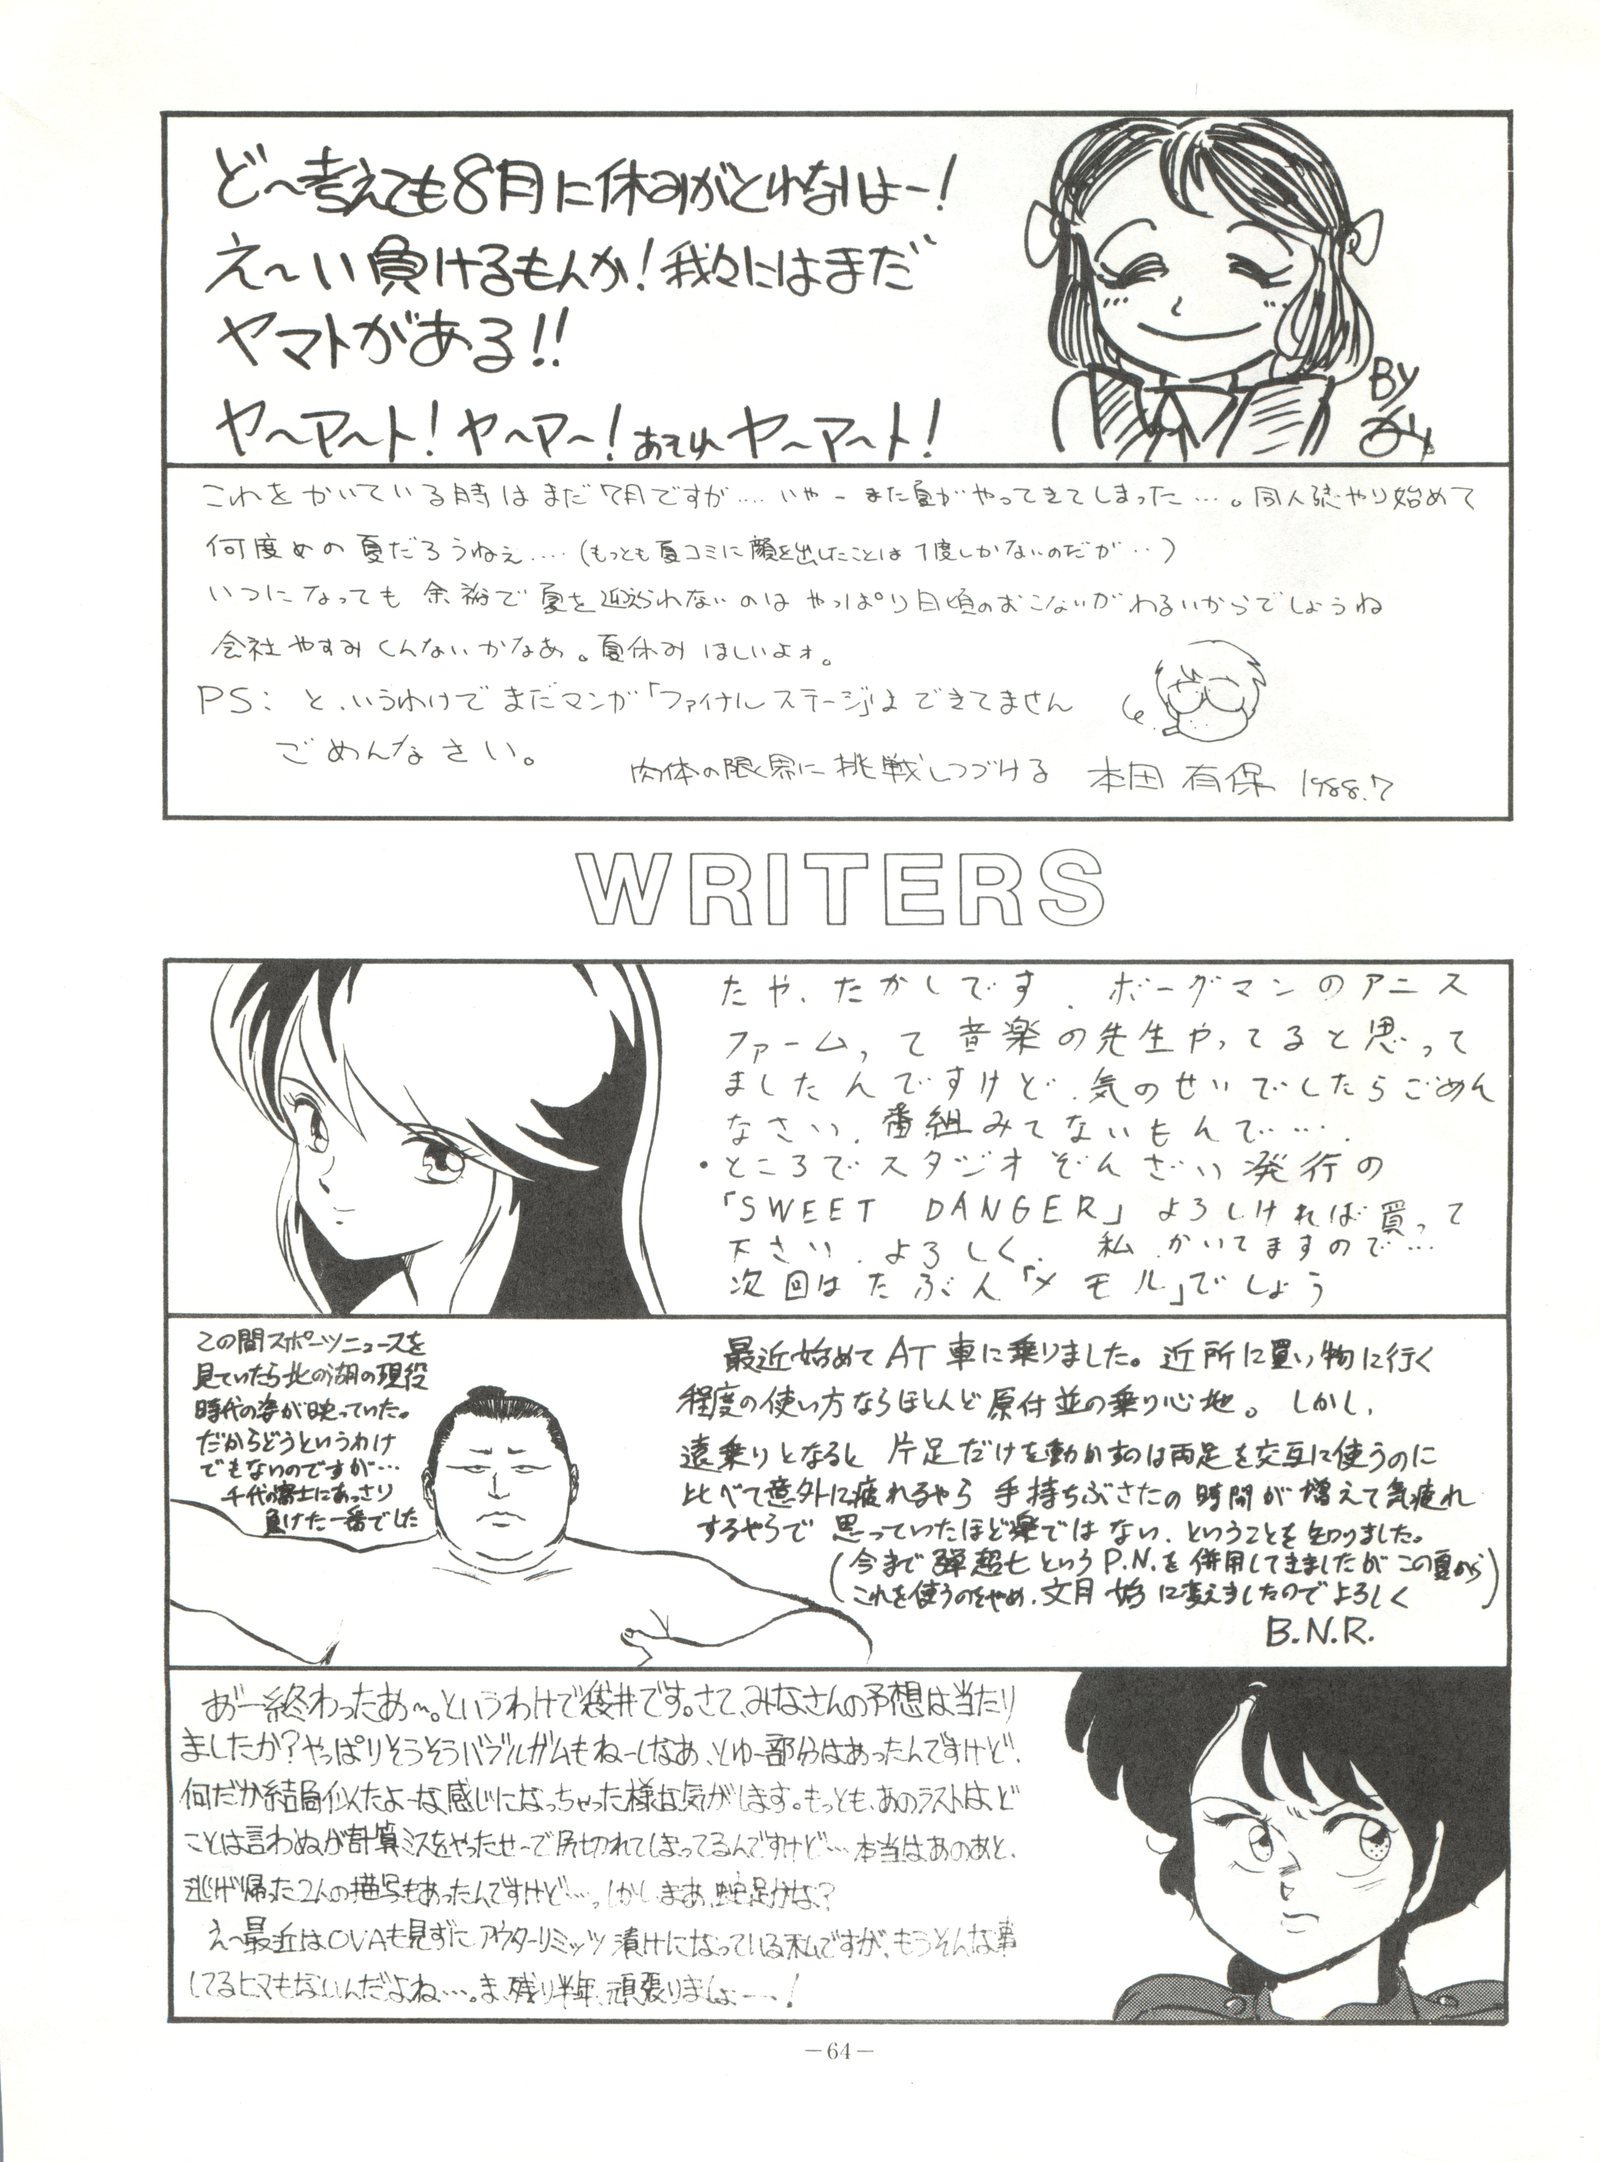 ど〜考えても8月に休みがとれないよー!
え〜い負けるもんか!我々にはまだ
ヤマトがある!!
ヤ〜ア〜ト!ヤ〜マ〜!あそれヤ〜マ〜ト!
BY
これをかいている時はまだ7月ですが‥‥いやーまた夏がやってきてしまった‥‥。同人誌やり始めて
何度めの夏だろうねぇ‥‥(もっとも夏コミに顔を出したことは1度しかないのだが‥)
いつになっても余裕で夏を迎えられないのはやっぱり日頃のおこないがわるいからでしょうね
会社やすみくんないかなあ。夏休みほしいよォ。
PS:と、いうわけでまだマンガ「ファイナルステージ」はできてません
ごめんなさい。
肉体の限界に挑戦しつづける 本田有保 1988.7
WRITERS
たや、たかしです.ボーグマンのアニス
ファームって音楽の先生やってると思って
ましたんですけど.気のせいでしたらごめん
なさい.番組みてないもんで‥‥.
・ところでスタジオぞんざい発行の
「SWEET DANGER」よろしければ買って
下さい.よろしく.私.かいてますので‥‥
次回はたぶん「メモル」でしょう
この間スポーツニュースを
見ていたら北の湖の現役
時代の姿が映っていた。
だからどうというわけ
でもないのですが‥‥
千代の富士にあっさり
負けた一番でした
最近始めてAT車に乗りました。近所に買い物に行く
程度の使い方ならほとんど原付並の乗り心地。しかし、
遠乗りとなると片足だけを動かすのは両足を交互に使うのに
比べて意外に疲れるやら手持ちぶさたの時間が増えて気疲れ
するやらで思っていたほど楽ではない、ということを知りました。
(今まで弾超七というP.N.を併用してきましたがこの夏から
これを使うのをやめ、文月 始に変えましたのでよろしく)
B.N.R.
あ゛ー終わったあ〜。というわけで袋井です。さて、みなさんの予想は当たり
ましたか?やっぱりそうそうバブルガムもねーしなあ、とゆ〜部分はあったんですけど、
何だか結局似たよーな感じになっちゃった様な気がします。もっとも、あのラストは、ど
ことは言わぬが計算ミスをやったせーで尻切れてしまってるんですけど‥‥本当はあのあと、
逃げ帰った2人の描写もあったんですけど‥‥。しかしまあ、蛇足かな?
え〜最近はOVAも見ずにアウターリミッツ漬けになっている私ですが、もうそんな事
してるヒマもないんだよね‥‥。ま、残り半年、頑張りましょーー!
－64－